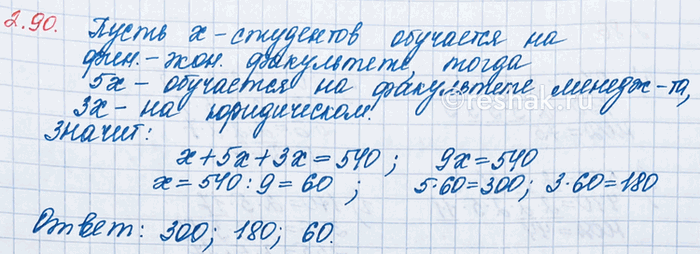 2.90. Пусть x - студентов обучается на
фин.-экон. факультете, тогда
5x - обучается на факультете менедж-та,
3x - на юридическом.
©reshak.ru
Значит:
x+5x+3x=540; 9x=540
x=540:9=60; 5·60=300; 3·60=180
Ответ: 300; 180; 60.